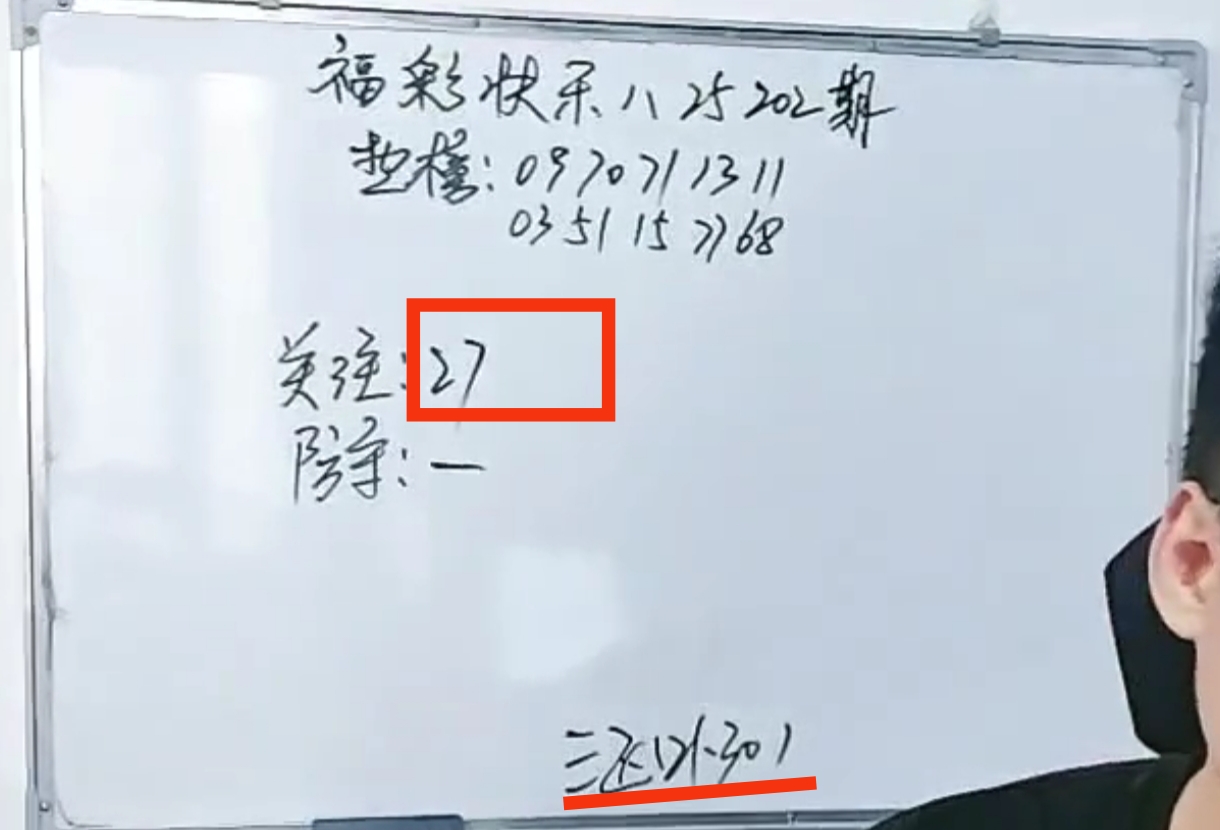 福彩快乐八25202期
垫模:0970711311
0351157768
关注:27
防守:一